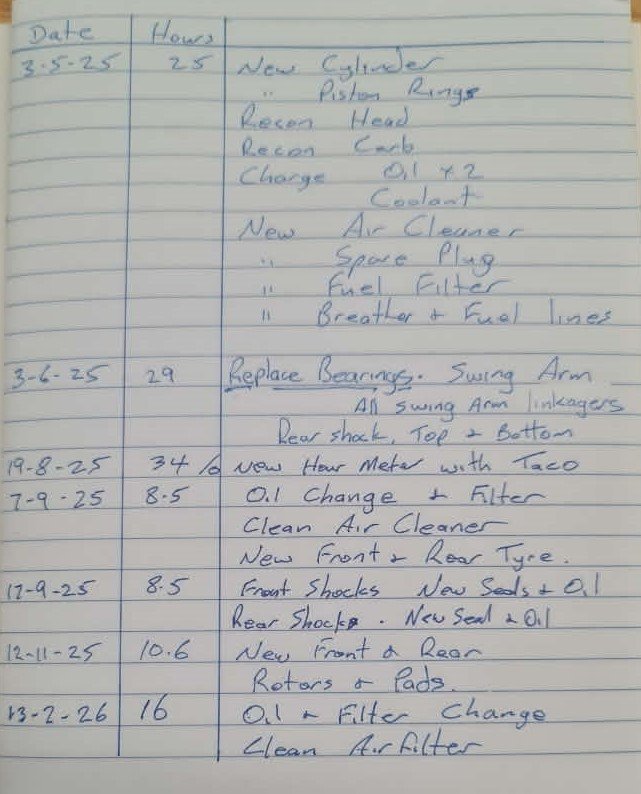 Date Hours
3-5-25 25 New Cylinder
" Piston Rings
Recon Head
Recon Carb
Change Oil x 2
Coolant
New Air Cleaner
" Spare Plug
" Fuel Filter
" Breather + Fuel lines
3-6-25 29 Replace Bearings. Swing Arm
All swing Arm linkagers
Rear shock, Top + Bottom
19-8-25 34/0 New Hour Meter with Taco
7-9-25 8.5 Oil Change + Filter
Clean Air Cleaner
New Front + Rear Tyre.
17-9-25 8.5 Front Shocks New Seals + Oil
Rear Shocks. New Seal + Oil
12-11-25 10.6 New Front + Rear
Rotors + Pads.
13-2-26 16 Oil + Filter Change
Clean Air filter